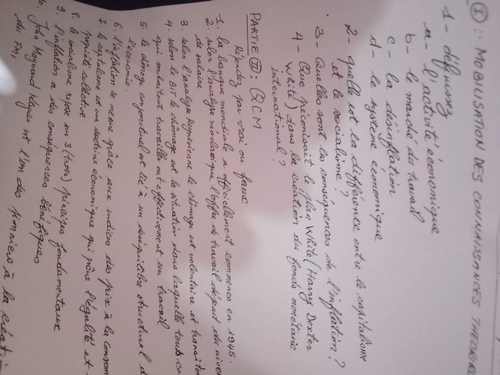 I: MOBILISATION DES CONNAISSANCES THEORIQ
1- définissez
a- l'activité économique
b- le marché du travail
c- la désinflation
d- le système économique
2- quelle est la différence entre le capitalisme
et le socialisme?
3- Quelles sont les conséquences de l'inflation?
4- Que préconisait le plan White (Harry Dexter
White) dans la création du fonds monétaire
international?
PARTIE II: QCM
Répondez par vrai ou faux
1. la banque mondiale a officiellement commencé en 1945.
2. selon l'analyse néoclassique l'offre de travail dépend du niveau
de salaire
3. selon l'analyse keynésienne le chômage est volontaire et
4. selon le BIT le chômage est la situation dans laquelle tous ce
qui souhaitent travailler ont effectivement un travail
5. le chômage conjoncturel est lié à un déséquilibre structurel d
l'économie
6. l'inflation se mesure grâce aux indices des prix à la consom
7. le capitalisme est un système économique qui prône l'égalité et
propriété collective
8. le socialisme repose sur 3 (trois) principes fondamentaux
9. l'inflation a des conséquences bénéfiques
10. John Maynard Keynes est l'un des premiers à la créatio
du FMI